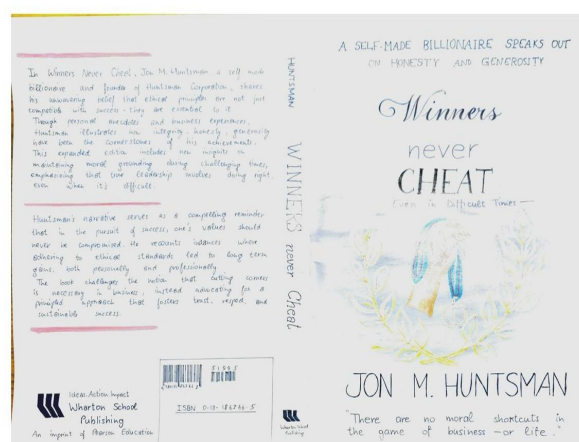 In Winners Never Cheat, Jon M. Huntsman a self made
billionaire and founder of Huntsman Corporation, shares
his unwavering belief that ethical principles are not just
compatible with success - they are essential to it.
Through personal anecdotes and business experiences,
Huntsman illustrates how integrity, honesty, generosity
have been the cornerstones of his achievements.
This expanded edition includes new insights on
maintaining moral grounding during challenging times,
emphasizing that true leadership involves doing right,
even when it's difficult.
Huntsman's narrative serves as a compelling reminder
that in the pursuit of success, one's values should
never be compromised. He recounts instances where
adhering to ethical standards led to long term
gains, both personally and professionally.
The book challenges the notion that cutting corners
is necessary in business, instead advocating for a
principled approach that fosters trust, respect, and
sustainable success.
51995
ISBN 0-13-186766-5
Ideas.Action.Impact
Wharton School
Publishing
An imprint of Pearson Education
HUNTSMAN WINNERS never Cheat
Wharton School
Publishing
A SELF-MADE BILLIONAIRE SPEAKS OUT
ON HONESTY AND GENEROSITY
Winners
never
CHEAT
Even in Difficult Times
JON M. HUNTSMAN
"There are no moral shortcuts in
the game of business - or life."